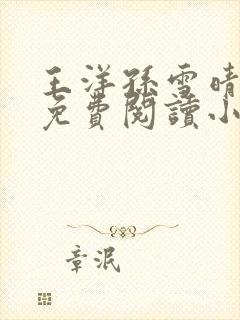 王洋孫雪晴
免費閱讀小
章泯